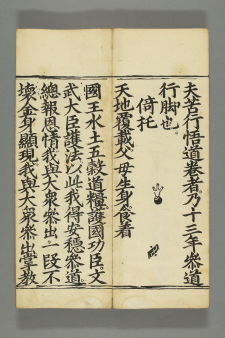 夫苦行悟道卷者乃十三年叅道
行脚也
倚托
天地覆載父母生身食着
國王水土五穀道糧護國功臣文
武大臣護法以此我得安穩叅道
總報恩情我與大衆叅出一段不
壞金身顯現我與大衆叅出掌教